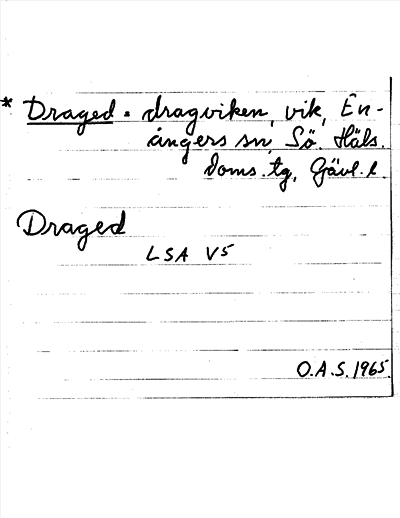 * Draged = dragviken, vik, En-
ångers sn, Sö. Häls.
doms. tg, Gävl. l.
Draged
LSA V5
O.A.S. 1965.